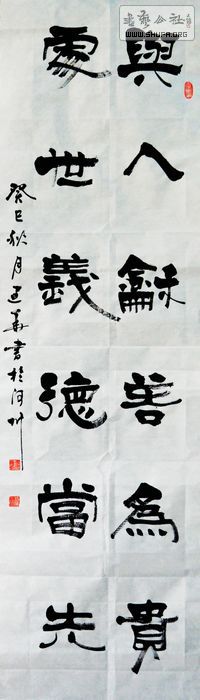 與人龢善為貴
處世義德當先
癸巳秋月 書於
書藝公社
WWW.SHUFA.ORG